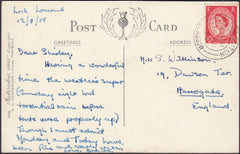 Loch Lomond
12/8/58
POST CARD
GREETINGS
ADDRESS
Dear Shirley,
Having a wonderful
time the weather's super
(Sunday night had
torrential rain before
tents were properly up)
Though I must admit
Monday and Today have
been fine and
love
Miss S. Wilkinson,
19, Dawson Ter
Harrogate
England.